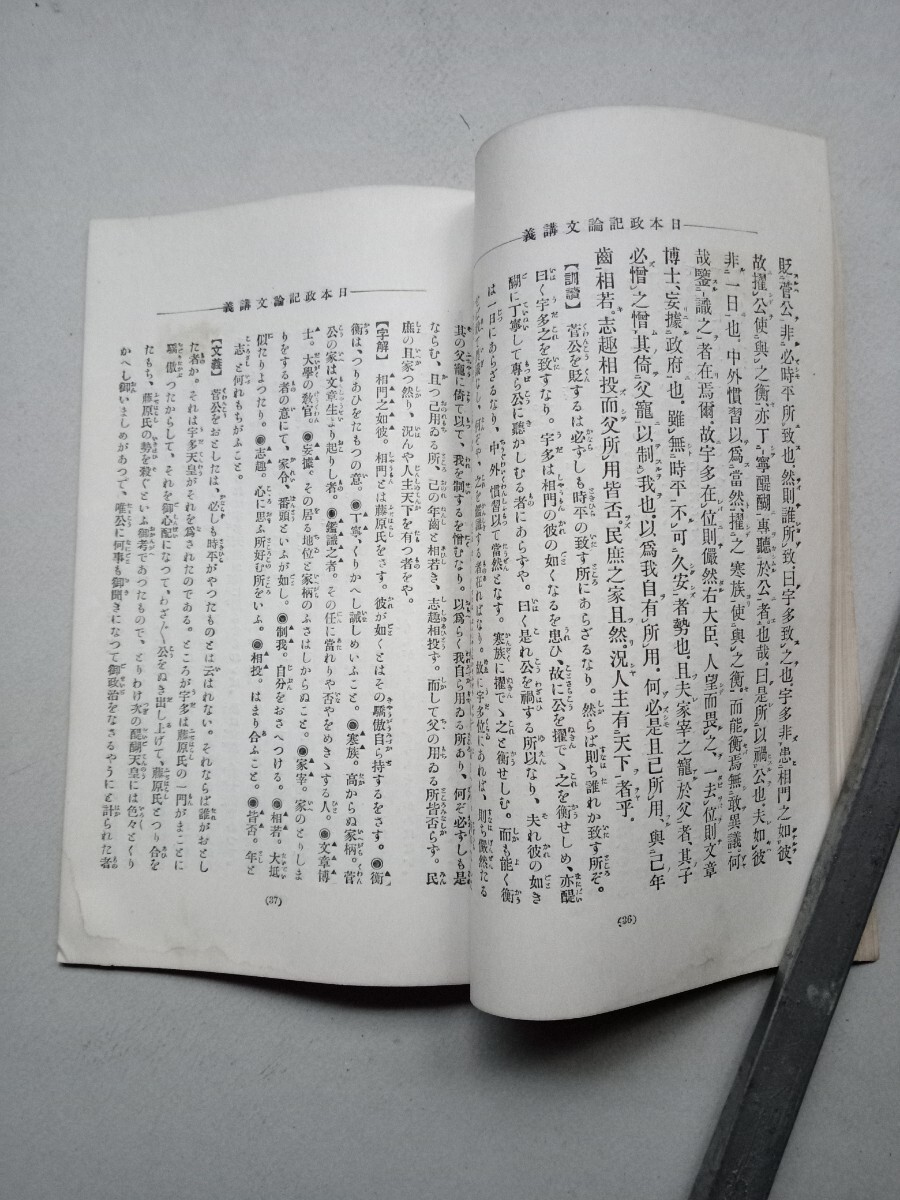 日本政記論文講義
貶菅公、非必時平所致也、然則誰所致、曰宇多致之也、宇多非患相門之如彼、
故擢公使與之衡、亦丁寧醍醐、專聽於公者也哉、曰是所以禍公也、夫如彼
非一日也、中外慣習以爲當然、擢之寒族、使與之衡、而能衡焉、無敢異議、何
哉、鑒識之者在焉爾、故宇多在位、則儼然右大臣、人望而畏之、一去位、則文章
博士、妄據政府也、雖無時平、不可久安者勢也、且夫家宰之寵於父者、其子
必憎之、憎其倚父寵以制我也、以爲我自有所用、何必是且己所用、與己年
齒相若、志趣相投、而父所用皆否、民庶之家且然、況人主有天下者乎。
【訓讀】 菅公を貶するは必ずしも時平の致す所にあらざるなり。然らば則ち誰れか致す所ぞ。
曰く宇多之を致すなり。宇多は相門の彼の如くなるを患ひ、故に公を擢でゝ之を衡せしめ、亦醍
醐に丁寧して專ら公に聽かしむる者にあらずや。曰く是れ公を禍する所以なり、夫れ彼の如き
は一日にあらざるなり、中外慣習して以て當然となす。寒族に擢でゝ之と衡せしむ。而も能く衡
(36)
日本政記論文講義
其の父寵に倚て以て、我を制するを憎むなり。以爲らく我自ら用ゐる所有り、何ぞ必ずしも是
ならむ、且つ己用ゐる所、己の年齒と相若き、志趣相投す。而して父の用ゐる所皆否らず。民
庶の家且つ然り、況んや人主天下を有つ者をや。
【字解】 相門之如彼。相門とは藤原氏をさす。彼が如くとはその驕傲自ら持するをさす。◉衡
衡は、つりあひをたもつの意。◉丁寧、くりかへし誡しめいふこと。◉寒族。高からぬ家柄。菅
公の家は文章生より起りし者。◉鑑識之者。その任に當れりや否やをめきゝする人。◉文章博
士。大學の敎官。◉妄據。その居る地位と家柄のふさはしからぬこと。◉家宰。家のとりしま
りをする者の意にて、家令、番頭といふが如し。◉制我。自分をおさへつける。◉相若。大坻
似たりよったり。◉志趣。心に思ふ所好む所をいふ。◉相投。はまり合ふこと。◉皆否。年と
志と何れもちがふこと。
【文義】 菅公をおとしたは、必しも時平がやつたものとは云はれない。それならば誰がおとし
た者か。それは宇多天皇がそれを爲されたのである。ところが宇多は藤原氏の一門がまことに
驕傲つたからして、それを御心配になつて、わざ〳〵公をぬき出し上げて、藤原氏とつり合を
たもち、藤原氏の勢を殺ぐといふ御考であつたもので、とりわけ次の醍醐天皇には色々とくり
かへし御いましめがあつて、唯公に何事も御聞きになつて御政治をなさるやうにと計られた者
(37)